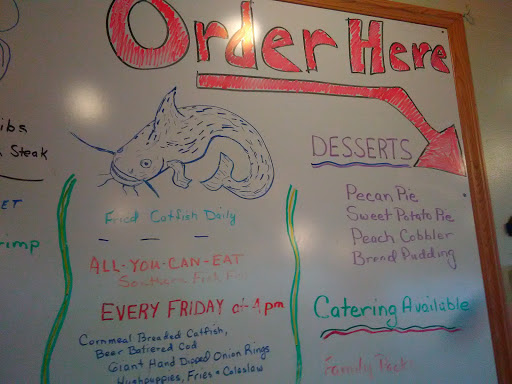 Order Here
ibs
Steak
ET
rimp
Fried Catfish Daily
ALL-YOU-CAN-EAT
Southern Fish Fry
EVERY FRIDAY at 4 pm
Cornmeal Breaded Catfish,
Beer Battered Cod
Giant Hand Dipped Onion Rings
Hushpuppies, Fries & Coleslaw
DESSERTS
Pecan Pie
Sweet Potato Pie
Peach Cobbler
Bread Pudding
Catering Available
Family Packs